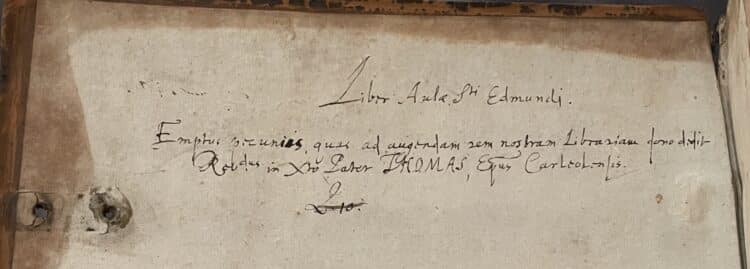 Liber Aulæ Sti Edmundi.
Emptus pecuniis, quas ad augendam rem nostram Librariam dono dedit
Revdus in Xto Pater THOMAS, Epus Carleolensis.